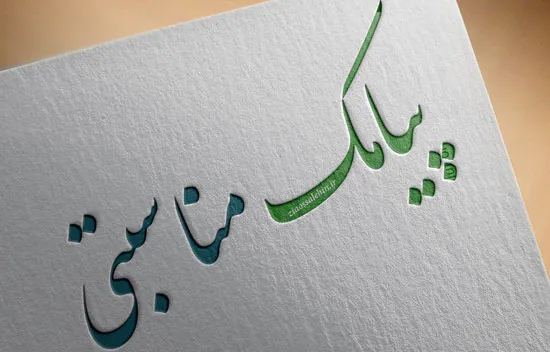 پیامک مناسبتی
ziaossalehin.ir